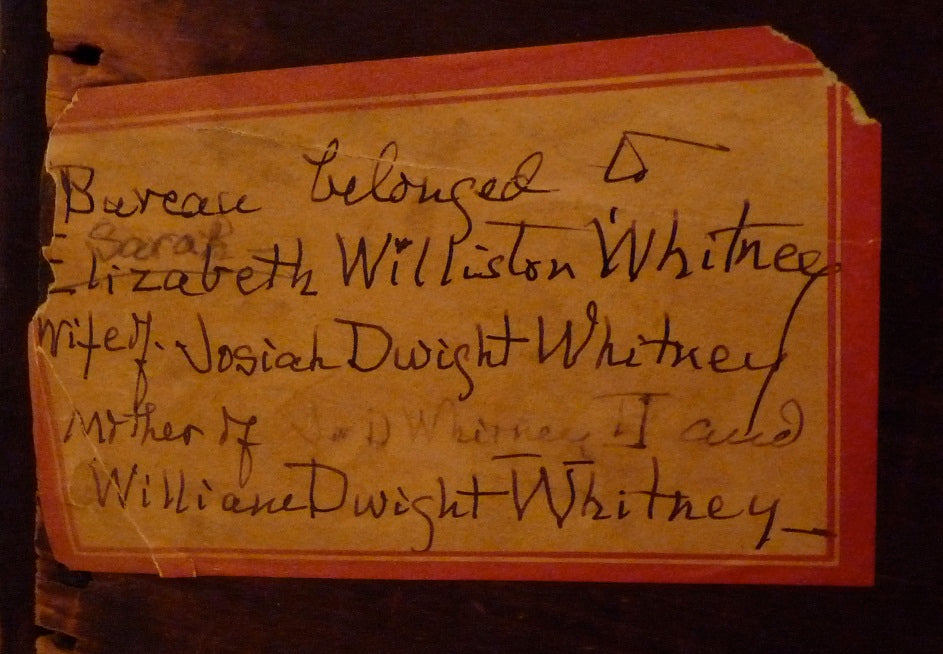 Bureau belonged to
Sarah
Elizabeth Williston Whitney
wife of. Josiah Dwight Whitney
Mother of J D Whitney II and
William Dwight Whitney